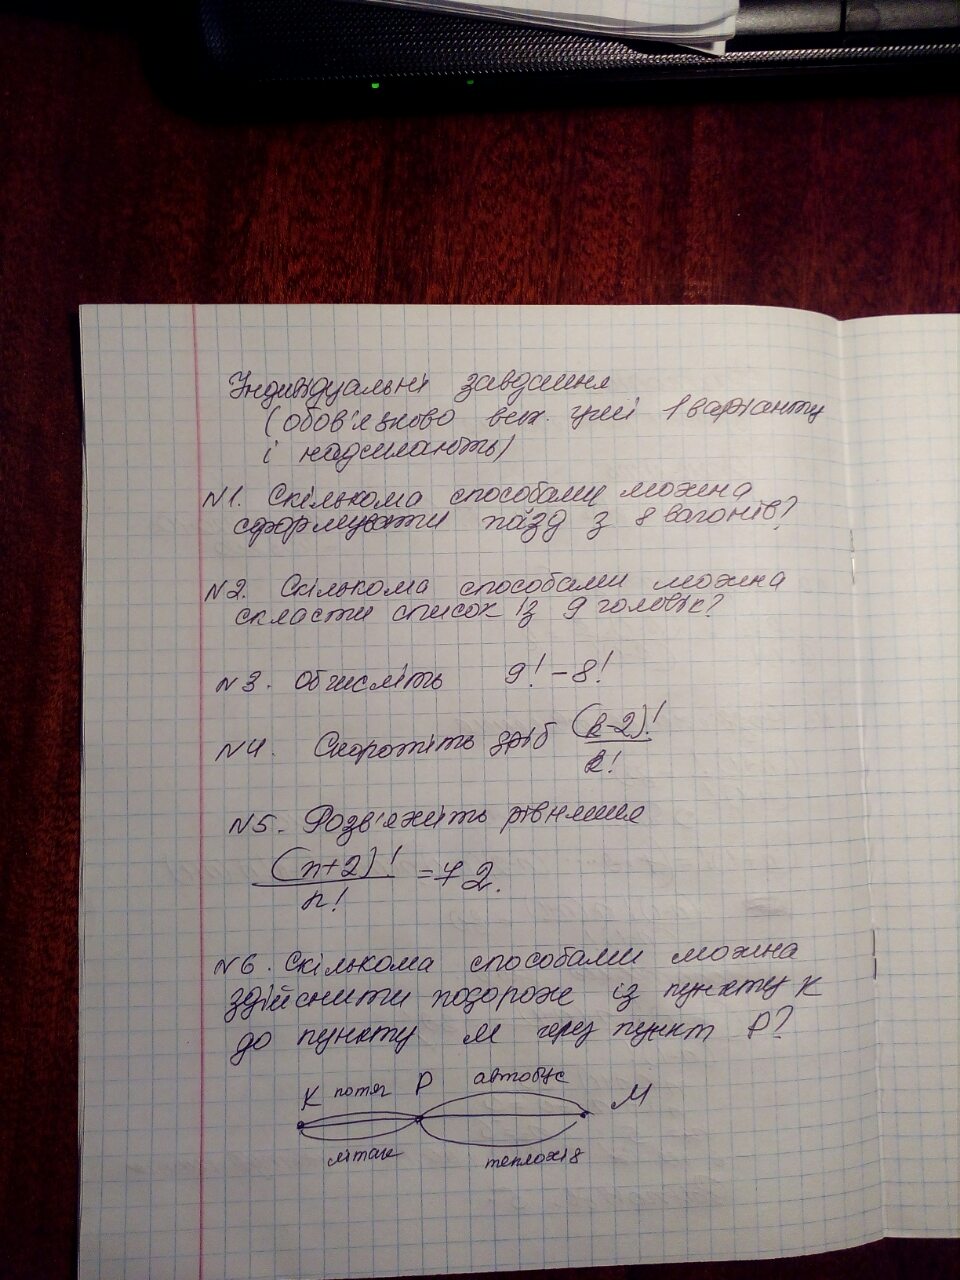 Індивідуальні завдання
(обов'язково всіх. учні 1 варіанту
і надсилають)
N1. Скількома способами можна
сформувати поїзд з 8 вагонів?
N2. Скількома способами можна
скласти список із 9 чоловік?
N3. Обчисліть 9! - 8!
N4. Скоротіть дріб (k-2)!
k!
N5. Розв'яжіть рівняння
(n+2)! = 72.
n!
N6. Скількома способами можна
здійснити подорож із пункту К
до пункту М через пункт Р?
К потяг Р автобус М
літак теплохід